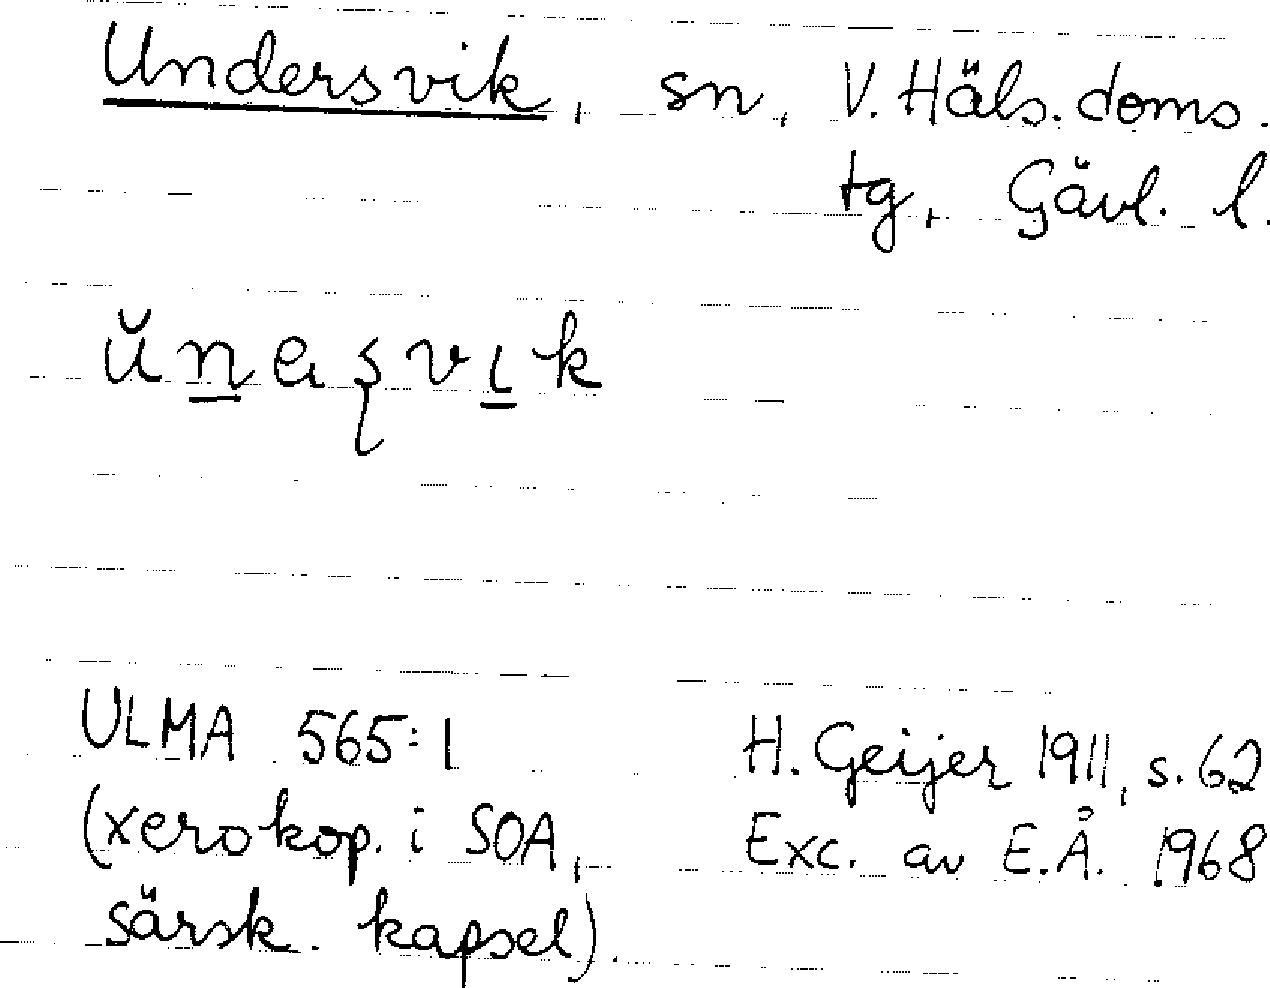 Undersvik, sn, V. Häls. doms.
tg, Gävl. l.
ULMA 565:1
(xerokop. i SOA,
särsk. kapsel).
H. Geijer 1911, s. 62
Exc. av E.Å. 1968